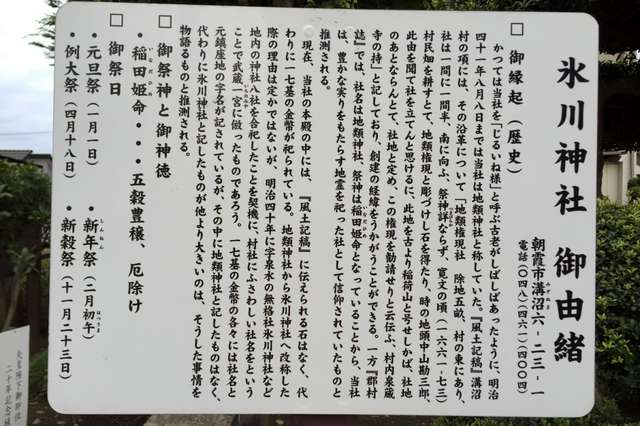 氷川神社 御由緒
朝霞市溝沼六-二三-一
電話(〇四八)(四六一)四〇〇四
□ 御縁起(歴史)
かつては当社を「じるいね様」と呼ぶ古老がしばしばあったように、明治
四十一年八月八日までは当社は地類神社と称していた。『風土記稿』溝沼
村の項には、その沿革について「地類権現社 除地五畝、村の東にあり、
社は一間に一間半、南に向ふ、祭神詳ならず、寛文の頃(一六六一-七三)
村民畑を耕すとて、地類権現と彫づけし石を得たり、時の地頭中山勘三郎、
此由を聞て社を立てんと思けるに、此地を古より稲荷山と号せしかば、社地
のあとならんとて、社地と定め、この権現を勧請せりと云伝ふ、村内泉蔵
寺の持」と記しており、創建の経緯をうかがうことができる。一方『郡村
誌』では、社名は地類神社、祭神は稲田姫命となっていることから、当社
は、豊かな実りをもたらす地霊を祀った社として信仰されていたものと
推測される。
現在、当社の本殿の中には、『風土記稿』に伝えられる石はなく、代
わりに一七基の金幣が祀られている。地類神社から氷川神社へ改称した
際の理由は定かではないが、明治四十年に字泉水の無格社氷川神社など
地内の神社八社を合祀したことを契機に、村社にふさわしい社名をという
ことで武蔵一宮に倣ったものであろう。一七基の金幣の各々には社名と
元鎮座地の字名が記されているが、その中に地類神社と記したものはなく、
代わりに氷川神社と記したものが他より大きいのは、そうした事情を
物語るものと推測される。
□ 御祭神と御神徳
・稲田姫命・・・五穀豊穣、厄除け
いなだひめ
□ 御祭日
・元旦祭(一月一日) ・新年祭(二月初午)
しんねん はつうま
・例大祭(四月十八日) ・新穀祭(十一月二十三日)
天皇陛下御即位
二十年記念